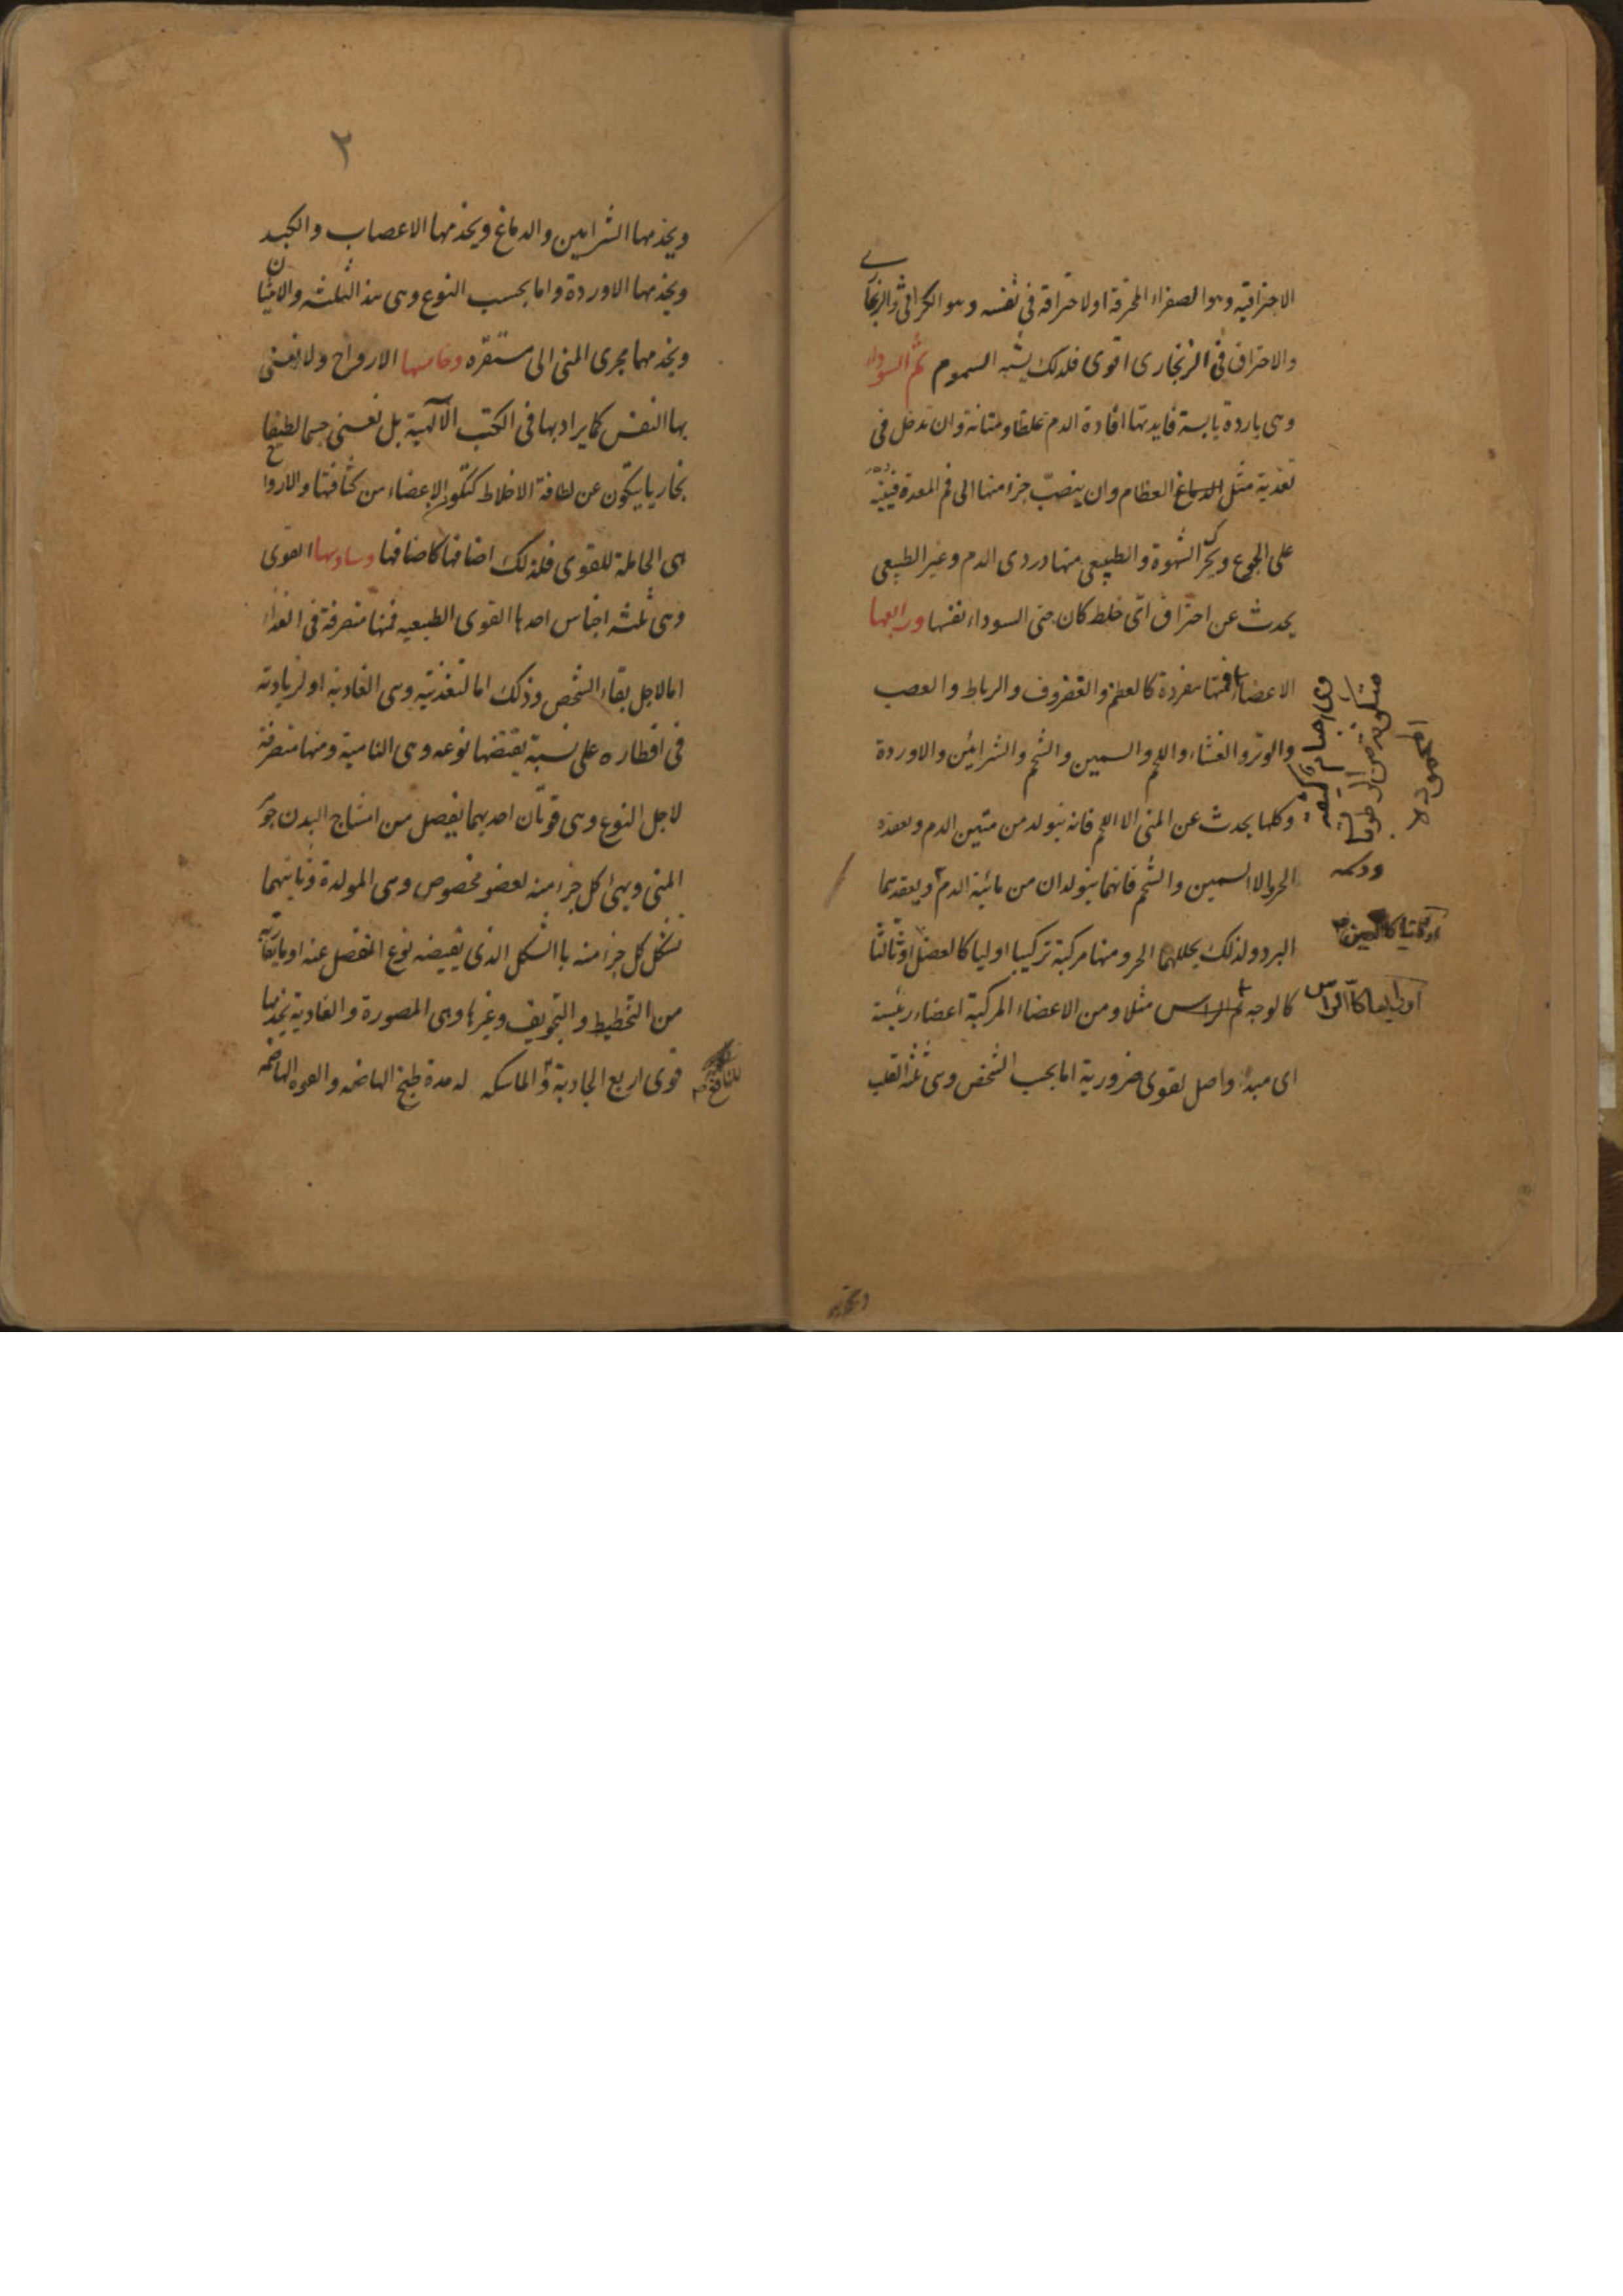 الاحتراقية وهو الصفراء المحرقة او لاحتراقه فى نفسه وهو الكراثى والزنجارى
والاحتراق فى الزنجارى اقوى فلذلك يشبه السموم ثم السوداء
وهى باردة يابسة فايدتها افادة الدم غلظا ومتانة وان تدخل فى
تغذية مثل العظام وان ينصب جزء منها الى فم المعدة فينبه
على الجوع ويحرك الشهوة والطبيعى منها دردى الدم وغير الطبيعى
يحدث عن احتراق اى خلط كان حتى السوداء نفسها ورابعها
الاعضاء فمنها مفردة كالعظم والغضروف والرباط والعصب
والوتر والغشاء واللحم والسمين والشحم والشرايين والاوردة
وكلها يحدث عن المنى الا اللحم فانه يتولد من متين الدم ويعقده
الحر والا السمين والشحم فانهما يتولدان من مائية الدم ويعقدهما
البرد ولذلك يحللهما الحر ومنها مركبة تركيبا اوليا كالعضل او ثالثا
كالوجه ثم الراس مثلا ومن الاعضاء المركبة اعضاء رئيسة
اى مبداء واصل لقوى ضرورية اما بحسب الشخص وهى ثلثة القلب
وهى اجسام كثيفة
متكونة من الرطوبات
المحمودة
او ثانيا كالعين
او رابعا كالراس
ويخدمها
٢
ويخدمها الشرايين والدماغ ويخدمها الاعصاب والكبد
ويخدمها الاوردة واما بحسب النوع وهى هذه الثلثة والانثيان
ويخدمهما مجرى المنى الى مستقره وخامسها الارواح ولا نعنى
بها النفس كما يراد بها فى الكتب الآلهية بل نعنى جسما لطيفا
بخاريا يتكون عن لطافة الاخلاط كتكون الاعضاء من كثافتها والارواح
هى الحاملة للقوى فلذلك اصنافها كاصنافها وسادسها القوى
وهى ثلثة اجناس احدها القوى الطبيعيه فمنها متصرفة فى الغذاء
اما لاجل بقاء الشخص وذلك اما لتغذيته وهى الغاذية او لزيادته
فى اقطاره على نسبة يقتضها نوعه وهى النامية ومنها متصرفة
لاجل النوع وهى قوتان احديهما يفصل من امشاج البدن جوهر
المنى ويهئ كل جزء منه لعضو مخصوص وهى المولدة وثانيهما
تشكل كل جزء منه بالشكل الذى يقتضيه نوع المنفصل عنه او ما يقاربه
من التخطيط والتجويف وغيرها وهى المصورة والغاذية يخدمها
قوى اربع الجاذبة للنافع والماسكه له مدة طبخ الهاضمه والقوة الهاضمه